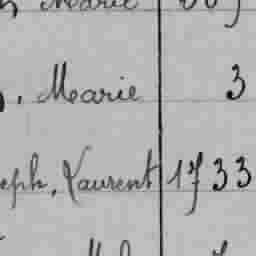 Marie
, Marie 3
eph, Laurent 1733